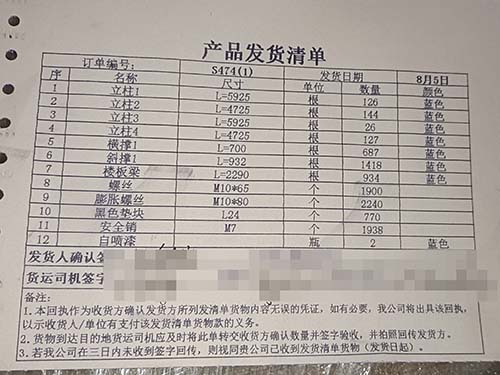 产品发货清单
订单编号: S474(1) 发货日期 8月5日
序 名称 尺寸 单位 数量 颜色
1 立柱1 L=5925 根 126 蓝色
2 立柱2 L=4725 根 144 蓝色
3 立柱3 L=5925 根 26 蓝色
4 立柱4 L=4725 根 127 蓝色
5 横撑1 L=700 根 687 蓝色
6 斜撑1 L=932 根 1418 蓝色
7 楼板梁 L=2290 根 934 蓝色
8 螺丝 M10*65 个 1900
9 膨胀螺丝 M10*80 个 2240
10 黑色垫块 L24 个 770
11 安全销 M7 个 1938
12 自喷漆 瓶 2 蓝色
发货人确认签
货运司机签字
备注:
1.本回执作为收货方确认发货方所列发清单货物内容无误的凭证，如有必要，我公司将出具该回执，
以示收货人/单位有支付该发货清单货物款的义务。
2.货物到达目的地货运司机应及时将此单转交收货方确认数量并签字验收，并拍照回传发货方。
3.若我公司在三日内未收到签字回传，则视同贵公司已收到发货清单货物（发货日起）.